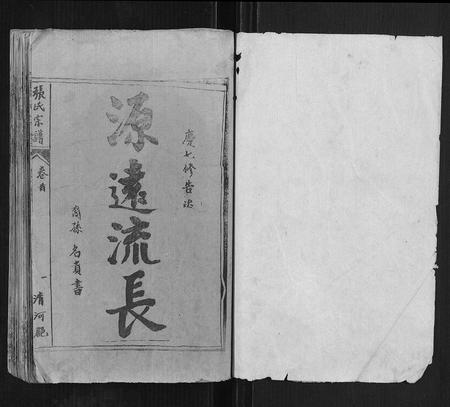 慶七修告竣
源遠流長
裔孫 名 書
張氏宗譜
卷首
一
清河郡